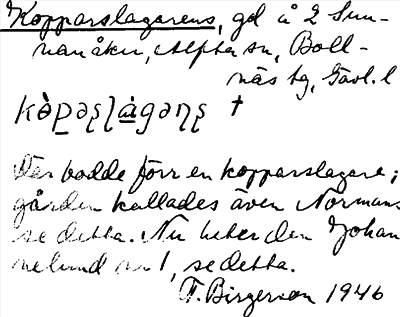 Kopparslagarens, gd å 2 Sun-
nanåker, Alfta sn, Boll-
näs tg, Gävl. l
kòpəʂlágəɳʂ †
Där bodde förr en kopparslagare;
gården kallades även Normans
se detta. Nu heter den Johan
nelund nr 1, se detta.
T. Birgerson 1946